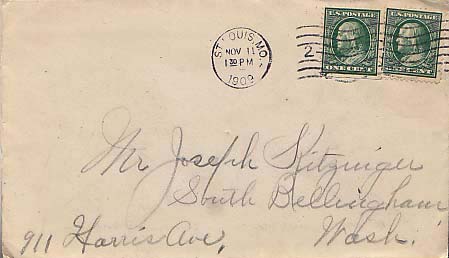 U.S. POSTAGE U.S. POSTAGE
ST. LOUIS, MO.
NOV 11
1 30 PM
1909
2
ONE CENT CENT
Mr Joseph Kitzinger
South Bellingham
911 Harris Ave, Wash.